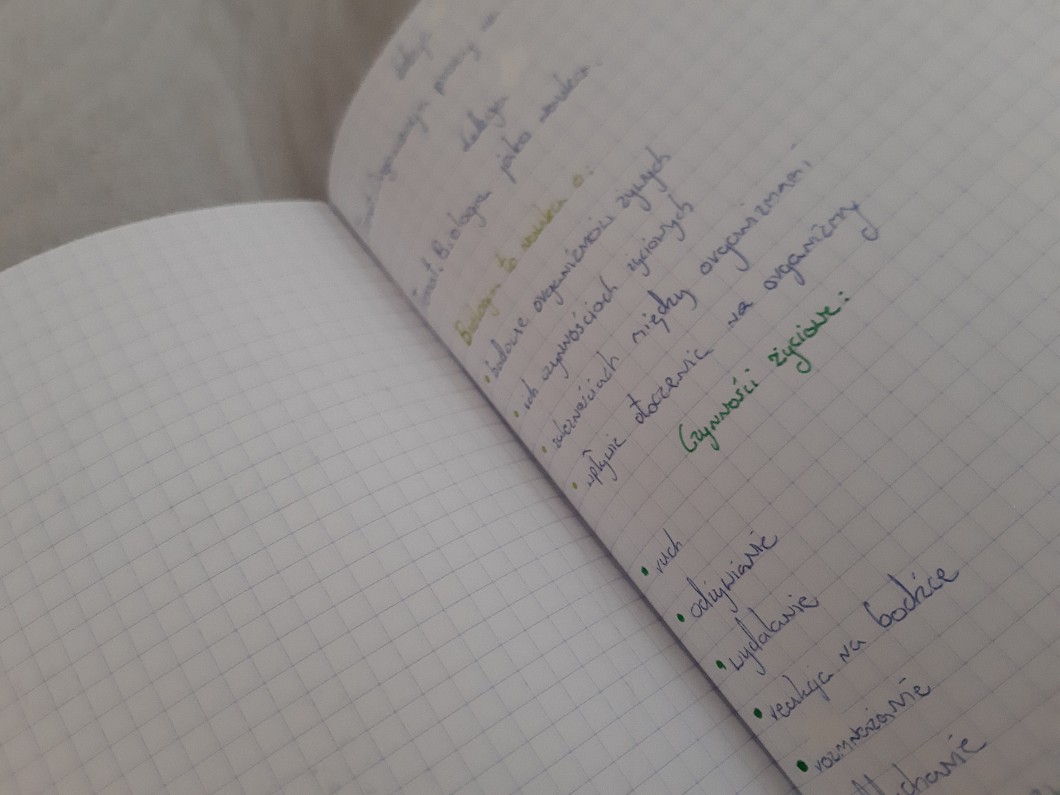 lekcja
Temat: Organizacja pracy na
lekcja
Temat: Biologia jako nauka.
Biologia to nauka o:
• budowie organizmów żywych
• ich czynnościach życiowych
• zależnościach między organizmami
• wpływie otoczenia na organizmy
Czynności życiowe:
• ruch
• odżywianie
• wydalanie
• reakcja na bodźce
• rozmnażanie